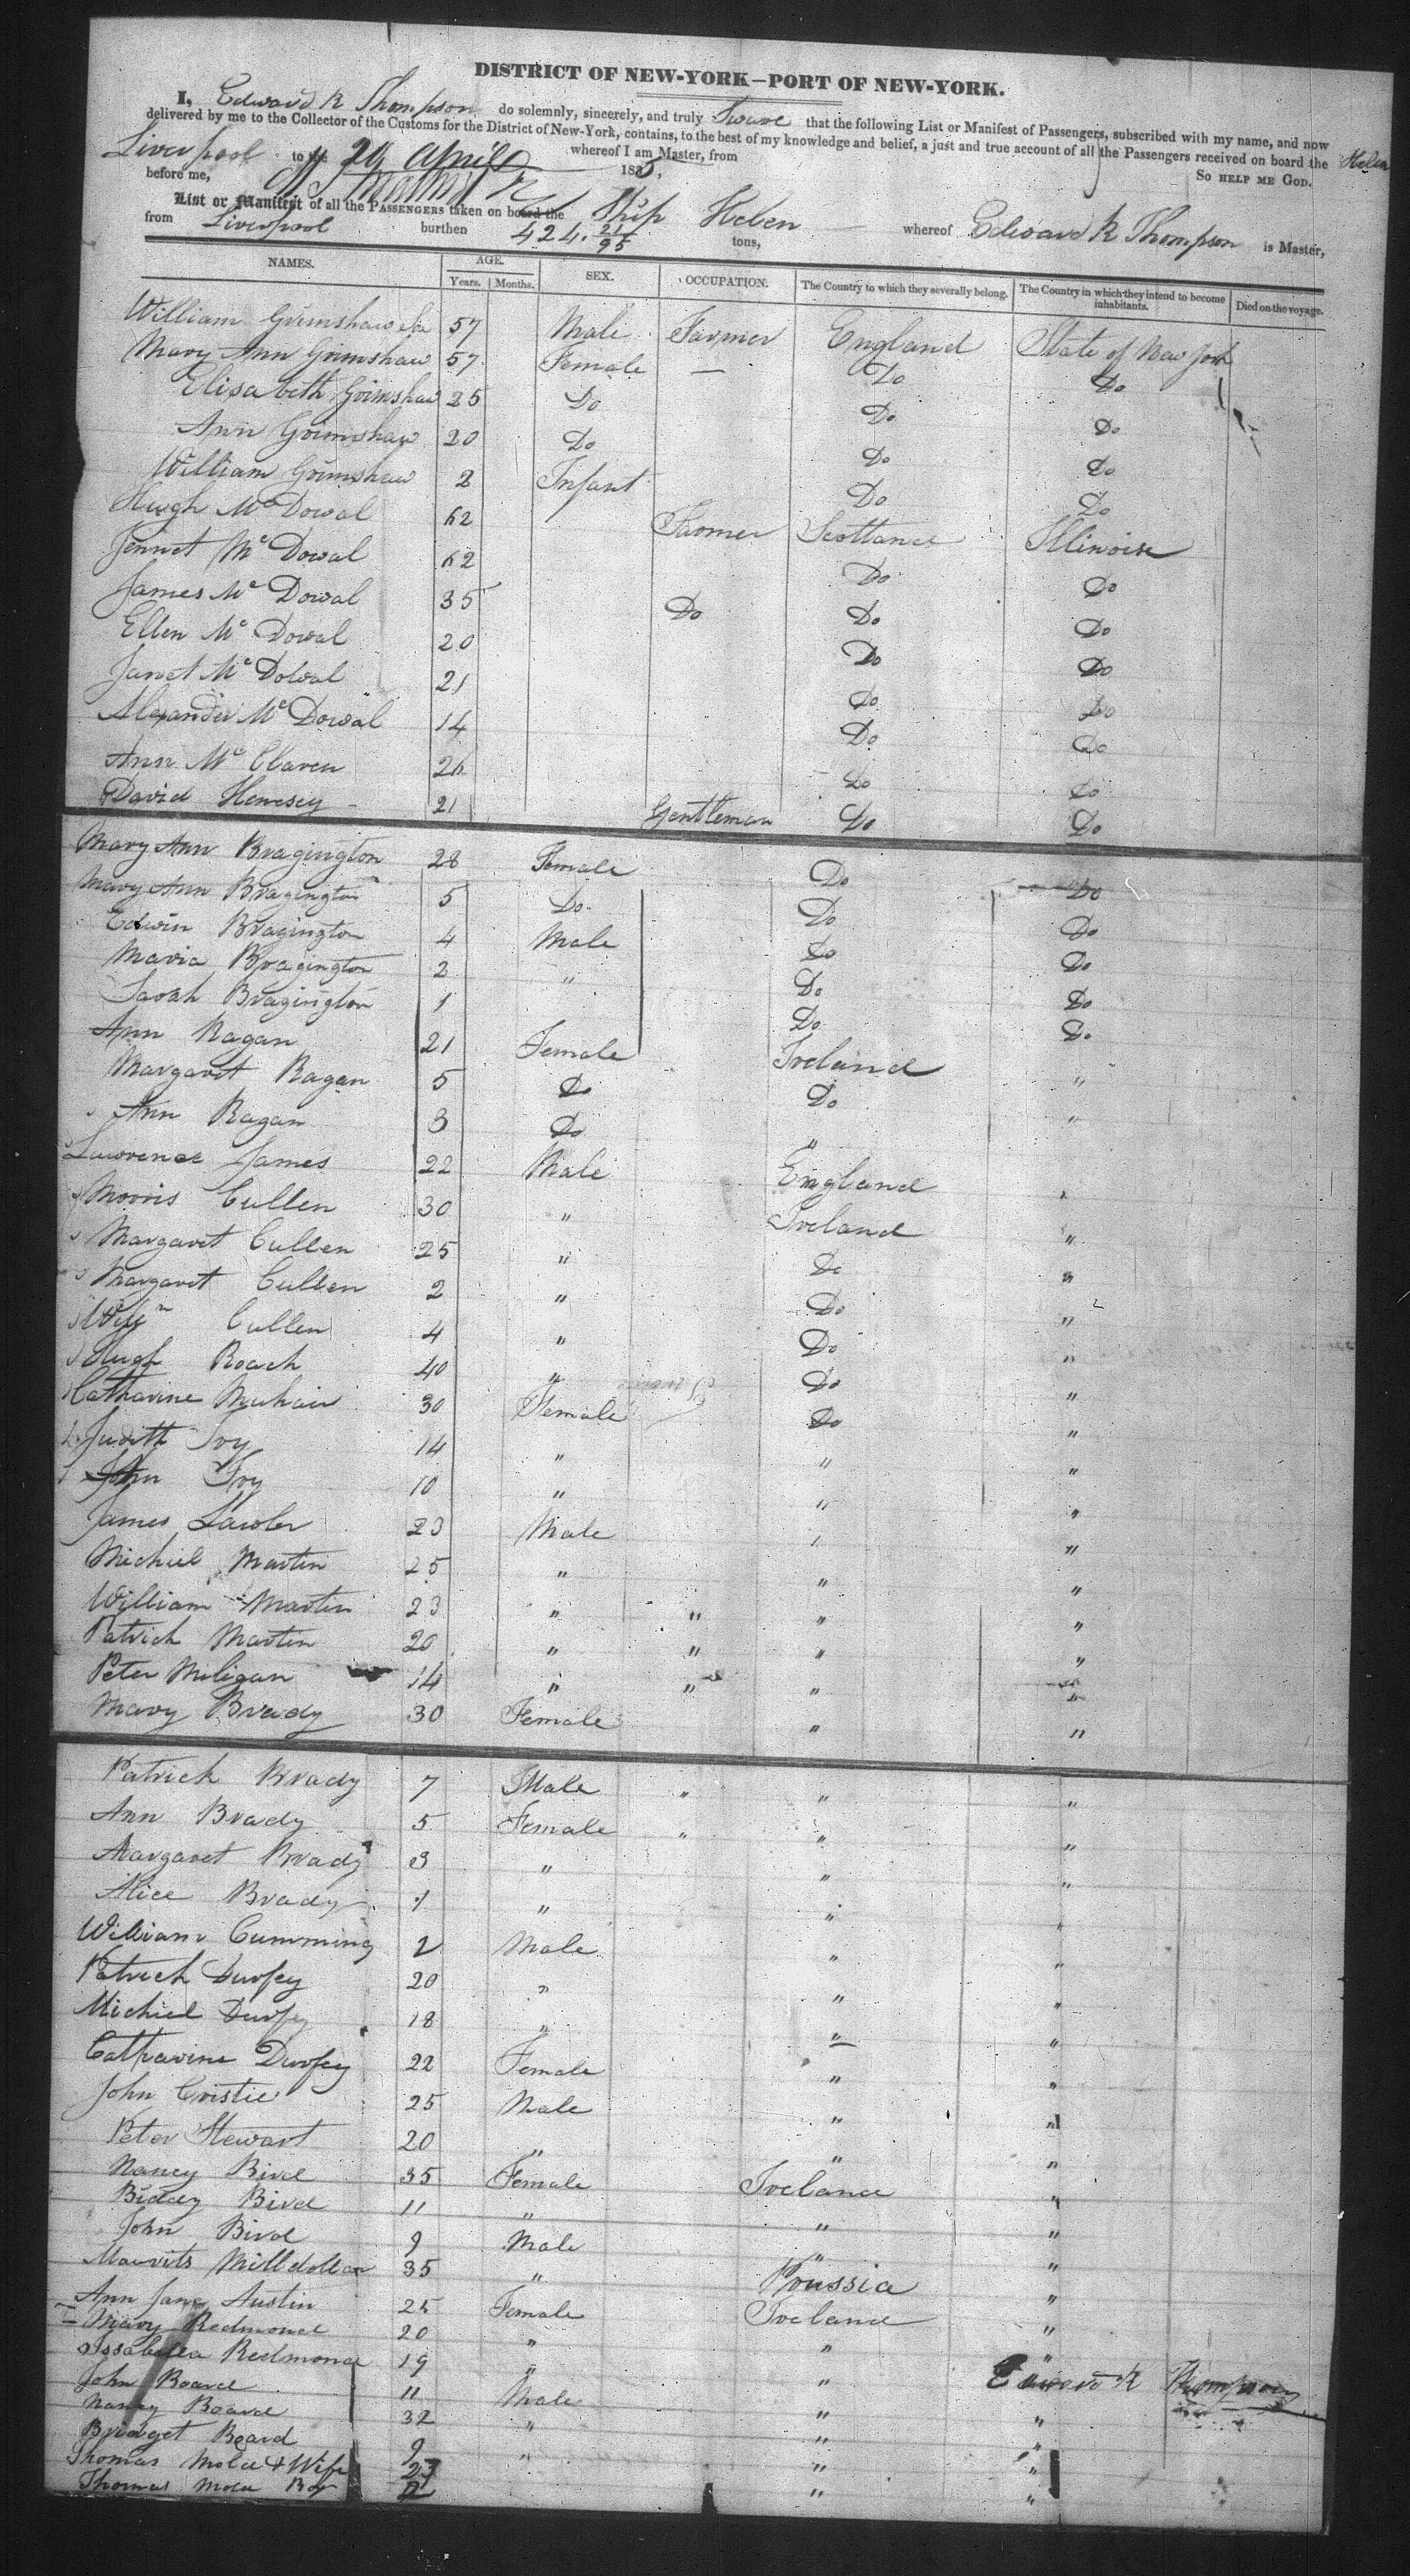 DISTRICT OF NEW-YORK—PORT OF NEW-YORK.
I, Edward R Thompson do solemnly, sincerely, and truly Sware that the following List or Manifest of Passengers, subscribed with my name, and now
delivered by me to the Collector of the Customs for the District of New-York, contains, to the best of my knowledge and belief, a just and true account of all the Passengers received on board the Helen
whereof I am Master, from Liverpool
to the 20 April 1835,
So HELP ME GOD.
before me,
List or Manifest of all the PASSENGERS taken on board the Ship Helen whereof Edward R Thompson is Master,
from Liverpool burthen 424. 21/95 tons,
NAMES. AGE. Years. Months. SEX. OCCUPATION. The Country to which they severally belong. The Country in which they intend to become inhabitants. Died on the voyage.
William Grimshaw 57 Male Farmer England State of New York
Mary Ann Grimshaw 57 Female — Do Do
Elisabeth Grimshaw 25 Do Do Do
Ann Grimshaw 20 Do Do Do
William Grimshaw 2 Infant Do Do
Hugh McDowal 62 Farmer Scottand Illinoise
Jennet McDowal 62 Do Do
James McDowal 35 Do Do Do
Ellen McDowal 20 Do Do
Janet McDowal 21 Do Do
Alexander McDowal 14 Do Do
Ann McClaren 26 Do Do
David Henesey 21 Gentleman Do Do
Mary Ann Bragington 28 Female Do Do
Mary Ann Bragington 5 Do Do Do
Edwin Bragington 4 Male Do Do
Maria Bragington 2 " Do Do
Sarah Bragington 1 Do Do
Ann Ragan 21 Female Ireland "
Margaret Ragan 5 Do Do "
Ann Ragan 3 Do "
Lawrence James 22 Male England "
Morris Cullen 30 " Ireland "
Margaret Cullen 25 " Do "
Margaret Cullen 2 " Do "
Cullen 4 " Do "
Hugh Roach 40 " Do "
Catharine 30 Female Do "
Judith Ivy 14 " " "
John Ivy 10 " " "
James Lawler 23 Male " "
Michiel Martin 25 " " "
William Martin 23 " " " "
Patrick Martin 20 " " " "
Peter Miligan 14 " " " "
Mary Brady 30 Female " "
Patrick Brady 7 Male " " "
Ann Brady 5 Female " " "
Margaret Brady 3 " " "
Alice Brady 1 " " "
William Cumming 2 Male " "
Patrick Durfey 20 " " "
Michiel Durfey 18 " " "
Catharine Durfey 22 Female " "
John Cristie 25 Male " "
Peter Stewart 20 " " "
Nancy Bird 35 Female Ireland "
Biddy Bird 11 " " "
John Bird 9 Male " "
Mauvits Milldollar 35 " Prussia "
Ann Jane Austin 25 Female Ireland "
Mary Redmond 20 " " "
Issabella Redmond 19 " " Edward R Thompson
John Board 11 Male " "
Nancy Board 32 " " "
Bridget Board 9 " " "
Thomas Mola & Wife 23 " "
Thomas Mola Boy " "